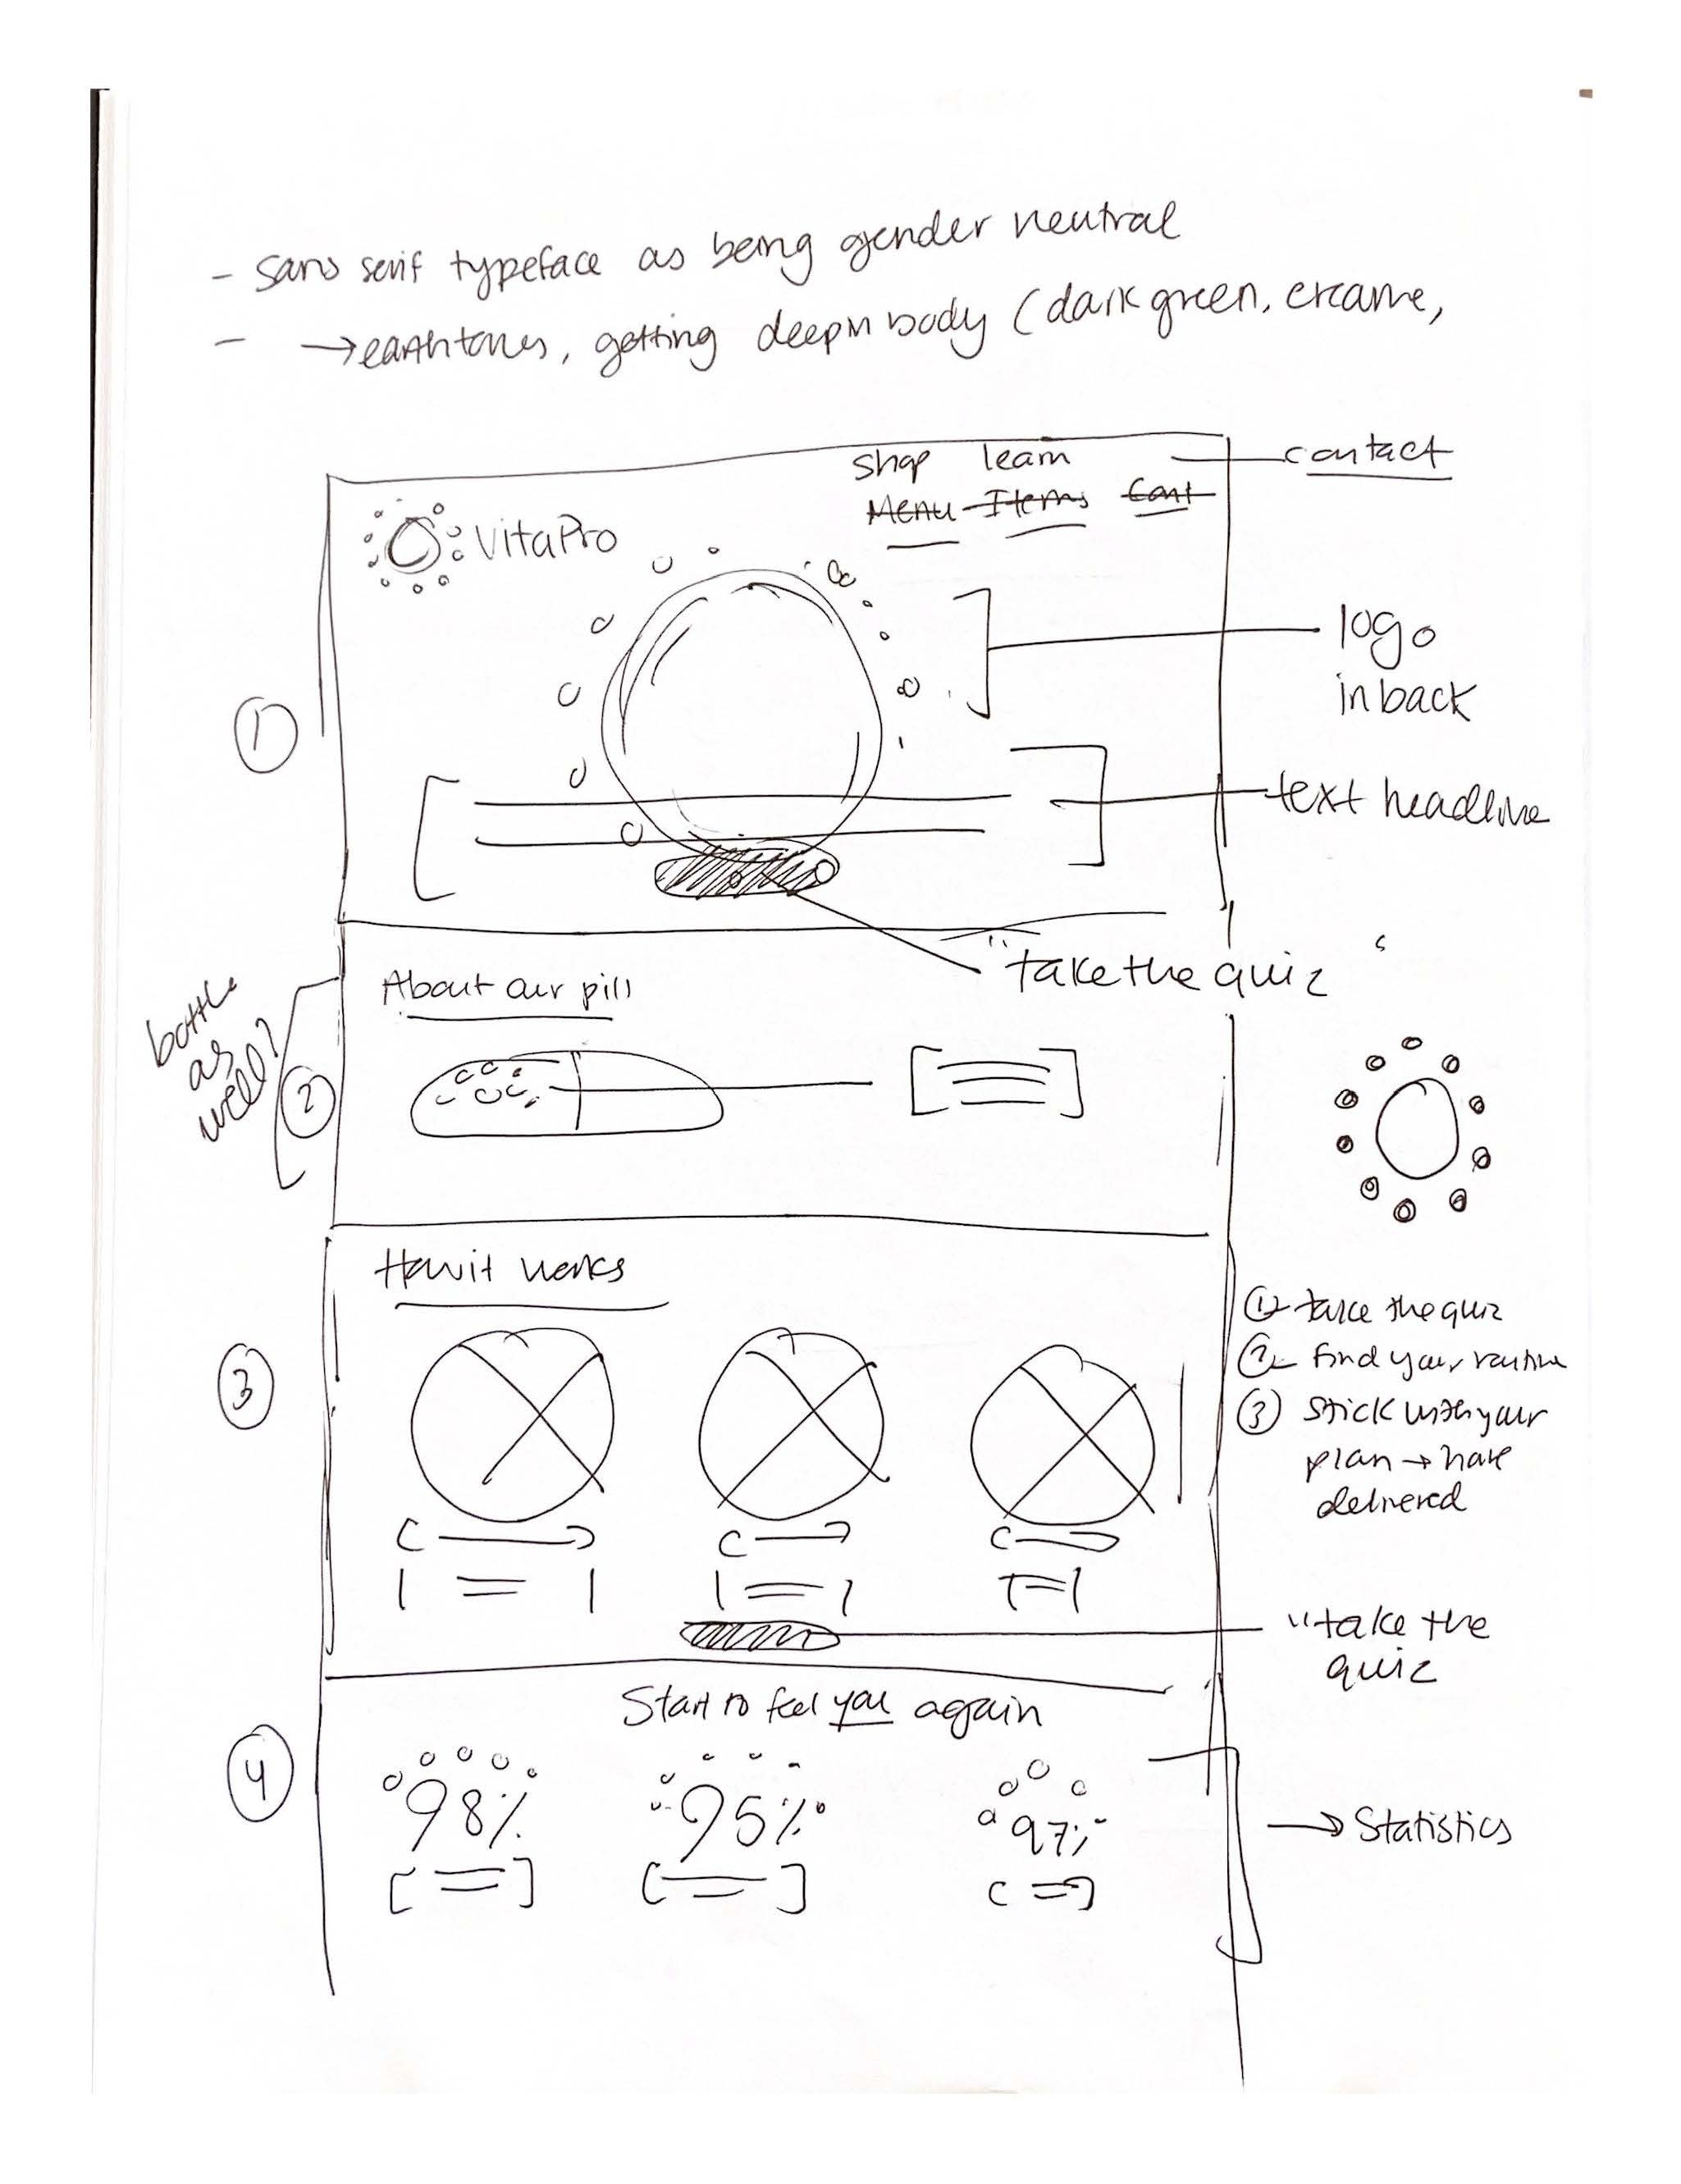 - sans serif typeface as being gender neutral
- → earthtones, getting deep in body (dark green, creame,
shop learn contact
Menu Items Cont
VitaPro
logo
in back
①
text headline
"take the quiz
About our pill
bottle
as
well?
②
How it works
① take the quiz
② find your routine
③ stick with your
plan → have
delivered
③
"take the
quiz
Start to feel you again
④
98% 95% 97%
→ Statistics